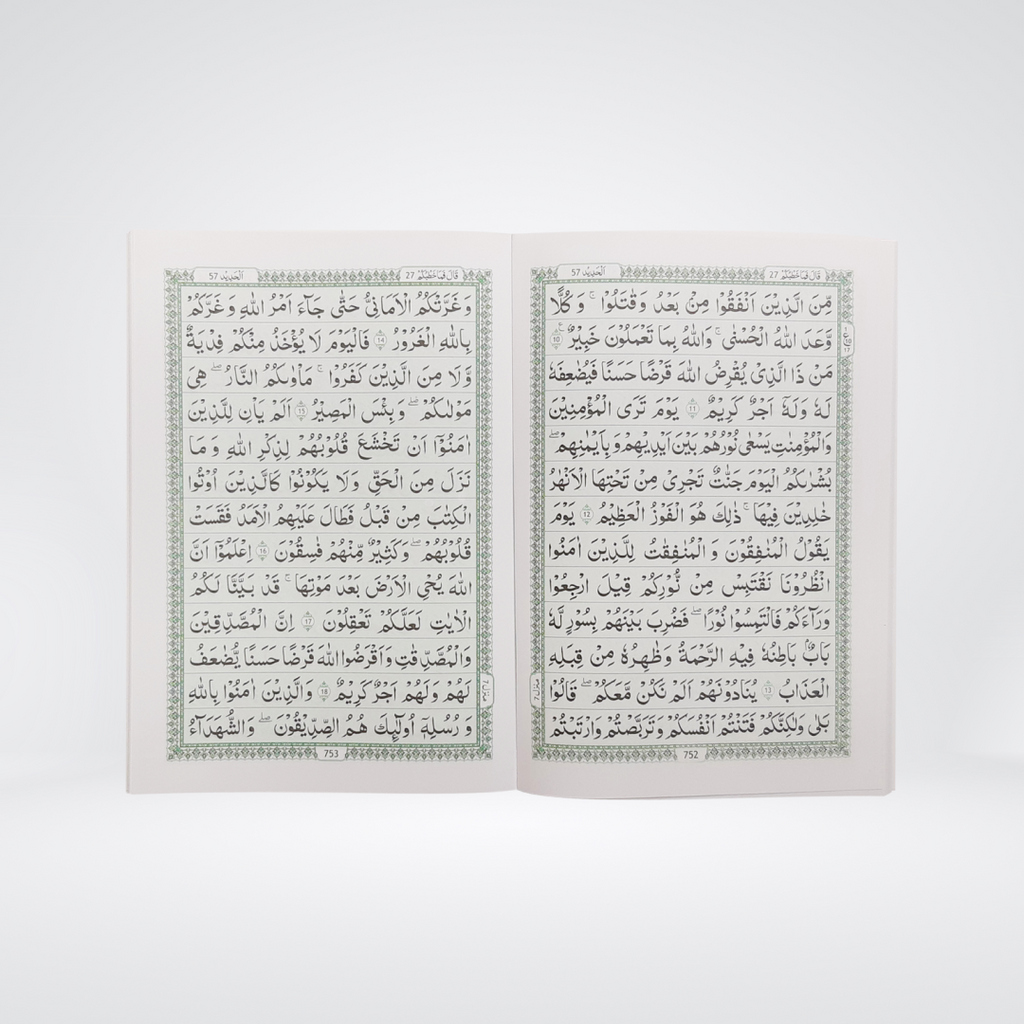 قَالَ فَمَا خَطْبُكُمْ 27
اَلْحَدِيْد 57
مِّنَ الَّذِيْنَ اَنْفَقُوْا مِنْۢ بَعْدُ وَقٰتَلُوْا ۚ وَ كُلًّا
وَّعَدَ اللّٰهُ الْحُسْنٰى ۚ وَاللّٰهُ بِمَا تَعْمَلُوْنَ خَبِيْرٌ 10
مَنْ ذَا الَّذِيْ يُقْرِضُ اللّٰهَ قَرْضًا حَسَنًا فَيُضٰعِفَهٗ
لَهٗ وَلَهٗۤ اَجْرٌ كَرِيْمٌ 11 يَوْمَ تَرَى الْمُؤْمِنِيْنَ
وَالْمُؤْمِنٰتِ يَسْعٰى نُوْرُهُمْ بَيْنَ اَيْدِيْهِمْ وَ بِاَيْمٰنِهِمْ ۖ
بُشْرٰىكُمُ الْيَوْمَ جَنّٰتٌ تَجْرِيْ مِنْ تَحْتِهَا الْاَنْهٰرُ
خٰلِدِيْنَ فِيْهَا ۚ ذٰلِكَ هُوَ الْفَوْزُ الْعَظِيْمُ 12 يَوْمَ
يَقُوْلُ الْمُنٰفِقُوْنَ وَ الْمُنٰفِقٰتُ لِلَّذِيْنَ اٰمَنُوا
انْظُرُوْنَا نَقْتَبِسْ مِنْ نُّوْرِكُمْ قِيْلَ ارْجِعُوْا
وَرَآءَكُمْ فَالْتَمِسُوْا نُوْرًا ۖ فَضُرِبَ بَيْنَهُمْ بِسُوْرٍ لَّهٗ
بَابٌ بَاطِنُهٗ فِيْهِ الرَّحْمَةُ وَظٰهِرُهٗ مِنْ قِبَلِهِ
الْعَذَابُ 13 يُنَادُوْنَهُمْ اَلَمْ نَكُنْ مَّعَكُمْ ۖ قَالُوْا
بَلٰى وَلٰكِنَّكُمْ فَتَنْتُمْ اَنْفُسَكُمْ وَتَرَبَّصْتُمْ وَارْتَبْتُمْ
منزل 7
752
قَالَ فَمَا خَطْبُكُمْ 27
اَلْحَدِيْد 57
وَ غَرَّتْكُمُ الْاَمَانِيُّ حَتّٰى جَآءَ اَمْرُ اللّٰهِ وَ غَرَّكُمْ
بِاللّٰهِ الْغَرُوْرُ 14 فَالْيَوْمَ لَا يُؤْخَذُ مِنْكُمْ فِدْيَةٌ
وَّلَا مِنَ الَّذِيْنَ كَفَرُوْا ۚ مَاْوٰىكُمُ النَّارُ ۖ هِيَ
مَوْلٰىكُمْ ۖ وَ بِئْسَ الْمَصِيْرُ 15 اَلَمْ يَاْنِ لِلَّذِيْنَ
اٰمَنُوْۤا اَنْ تَخْشَعَ قُلُوْبُهُمْ لِذِكْرِ اللّٰهِ وَ مَا
نَزَلَ مِنَ الْحَقِّ وَلَا يَكُوْنُوْا كَالَّذِيْنَ اُوْتُوا
الْكِتٰبَ مِنْ قَبْلُ فَطَالَ عَلَيْهِمُ الْاَمَدُ فَقَسَتْ
قُلُوْبُهُمْ ۖ وَكَثِيْرٌ مِّنْهُمْ فٰسِقُوْنَ 16 اِعْلَمُوْۤا اَنَّ
اللّٰهَ يُحْيِ الْاَرْضَ بَعْدَ مَوْتِهَا ۚ قَدْ بَيَّنَّا لَكُمُ
الْاٰيٰتِ لَعَلَّكُمْ تَعْقِلُوْنَ 17 اِنَّ الْمُصَّدِّقِيْنَ
وَالْمُصَّدِّقٰتِ وَاَقْرَضُوا اللّٰهَ قَرْضًا حَسَنًا يُّضٰعَفُ
لَهُمْ وَلَهُمْ اَجْرٌ كَرِيْمٌ 18 وَالَّذِيْنَ اٰمَنُوْا بِاللّٰهِ
وَ رُسُلِهٖۤ اُولٰٓئِكَ هُمُ الصِّدِّيْقُوْنَ ۖ وَالشُّهَدَآءُ
منزل 7
753